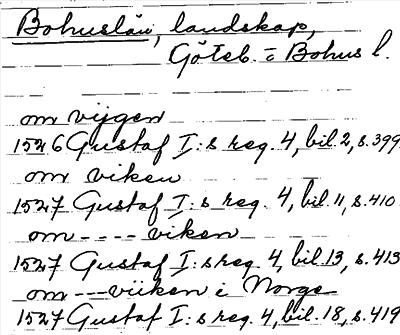 Bohuslän, landskap,
Göteb. o Bohus l.
om vijgen
1526 Gustaf I:s reg. 4, bil. 2, s. 399
om viken
1527 Gustaf I:s reg. 4, bil. 11, s. 410
om - - - - viken
1527 Gustaf I:s reg. 4, bil. 13, s. 413
om - - - viiken i Norge
1527 Gustaf I:s reg. 4, bil. 18, s. 419